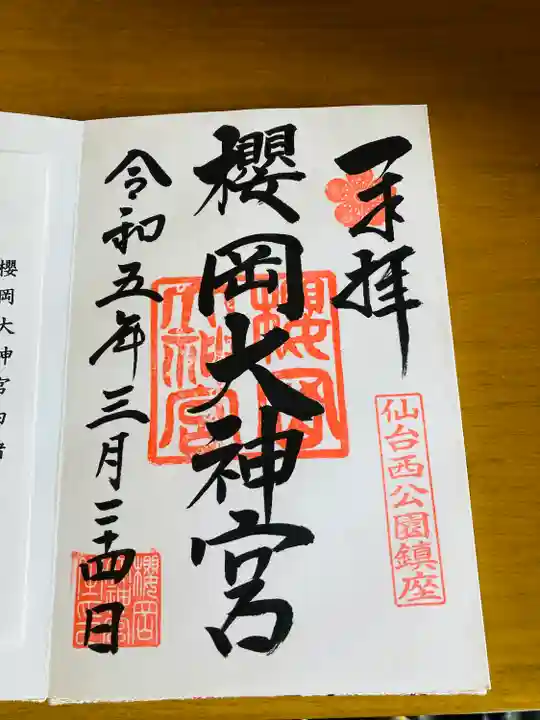 奉拝
仙台西公園鎮座
櫻岡大神宮
櫻岡大神宮
令和五年三月二十四日
櫻岡大神宮